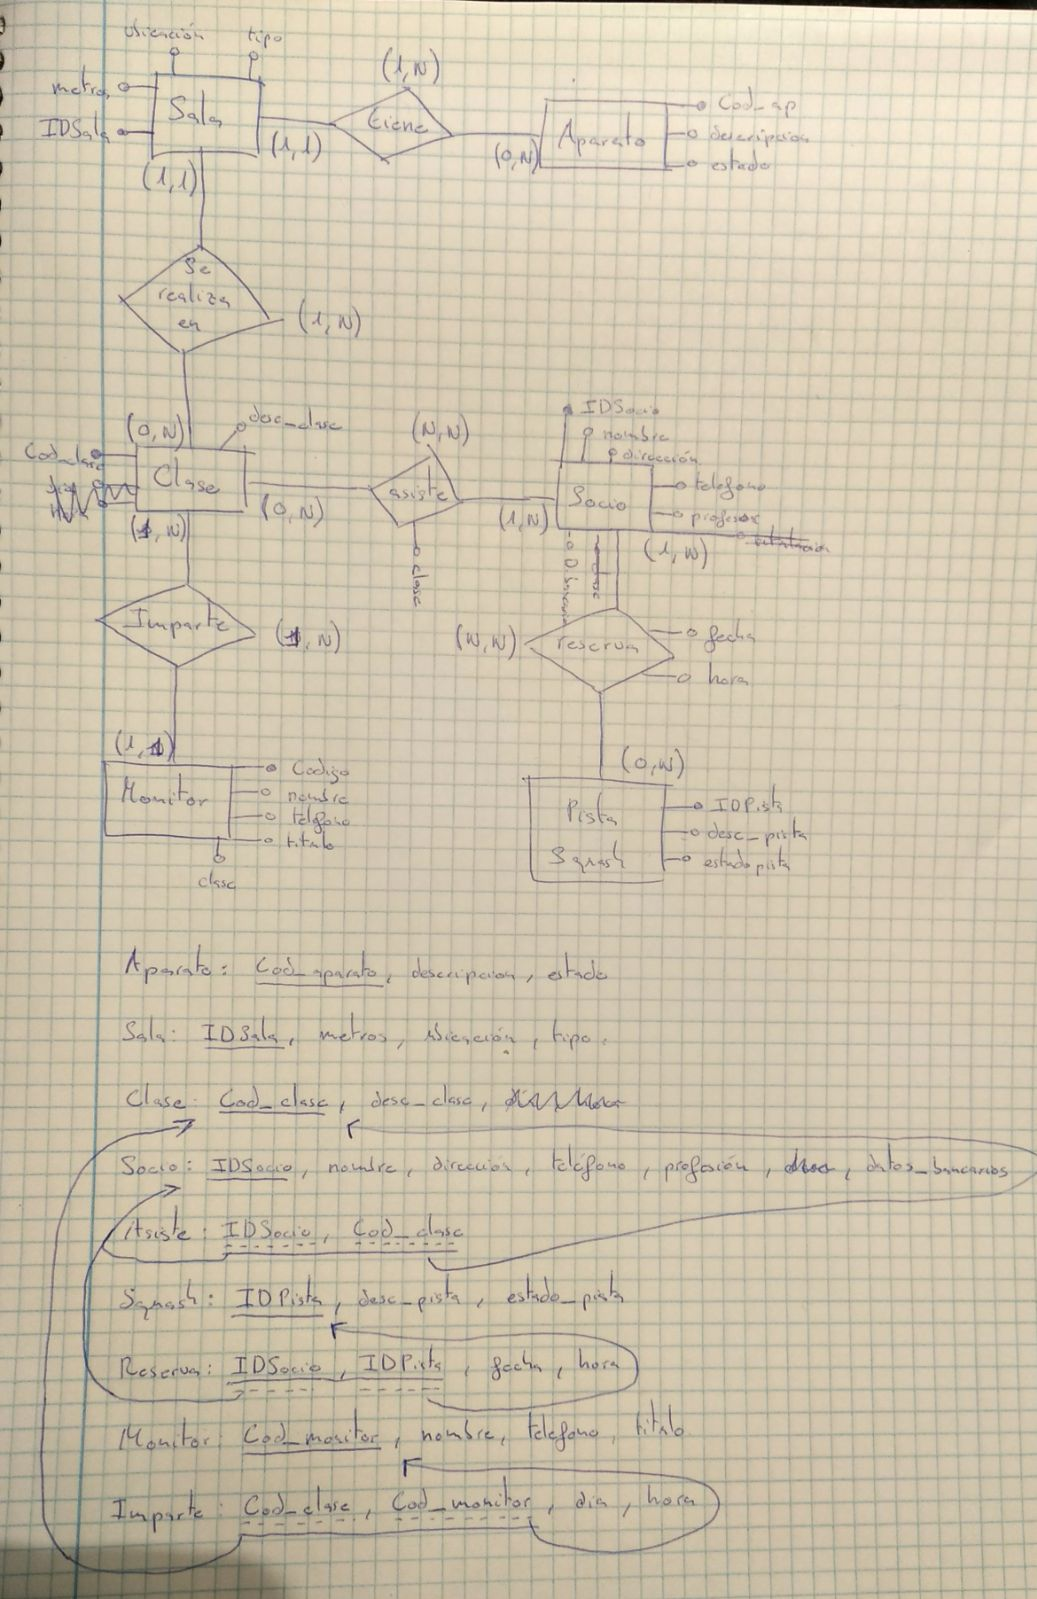 ubicación tipo
(1,N)
metros
Sala
IDSala
tiene
Cod_ap
Aparato
descripcion
estado
(1,1)
(0,N)
(1,1)
Se
realiza
en
(1,N)
IDSocio
nombre
dirección
(0,N)
desc_clase
(N,N)
Cod_clase
Clase
asiste
Socio
telefono
profesor
(0,N)
(1,N)
(1,N)
(1,N)
titulación
clase
D.bancario
clase
Imparte
(1,N)
(N,N)
reserva
fecha
hora
(1,1)
(0,N)
Monitor
Codigo
nombre
telefono
titulo
clase
Pista
Squash
IDPista
desc_pista
estado pista
Aparato: Cod_aparato, descripcion, estado
Sala: IDSala, metros, ubicación, tipo.
Clase: Cod_clase, desc_clase,
Socio: IDSocio, nombre, dirección, teléfono, profesión, datos_bancarios
Asiste: IDSocio, Cod_clase
Squash: IDPista, desc_pista, estado_pista
Reserva: IDSocio, IDPista, fecha, hora
Monitor: Cod_monitor, nombre, telefono, titulo
Imparte: Cod_clase, Cod_monitor, dia, hora